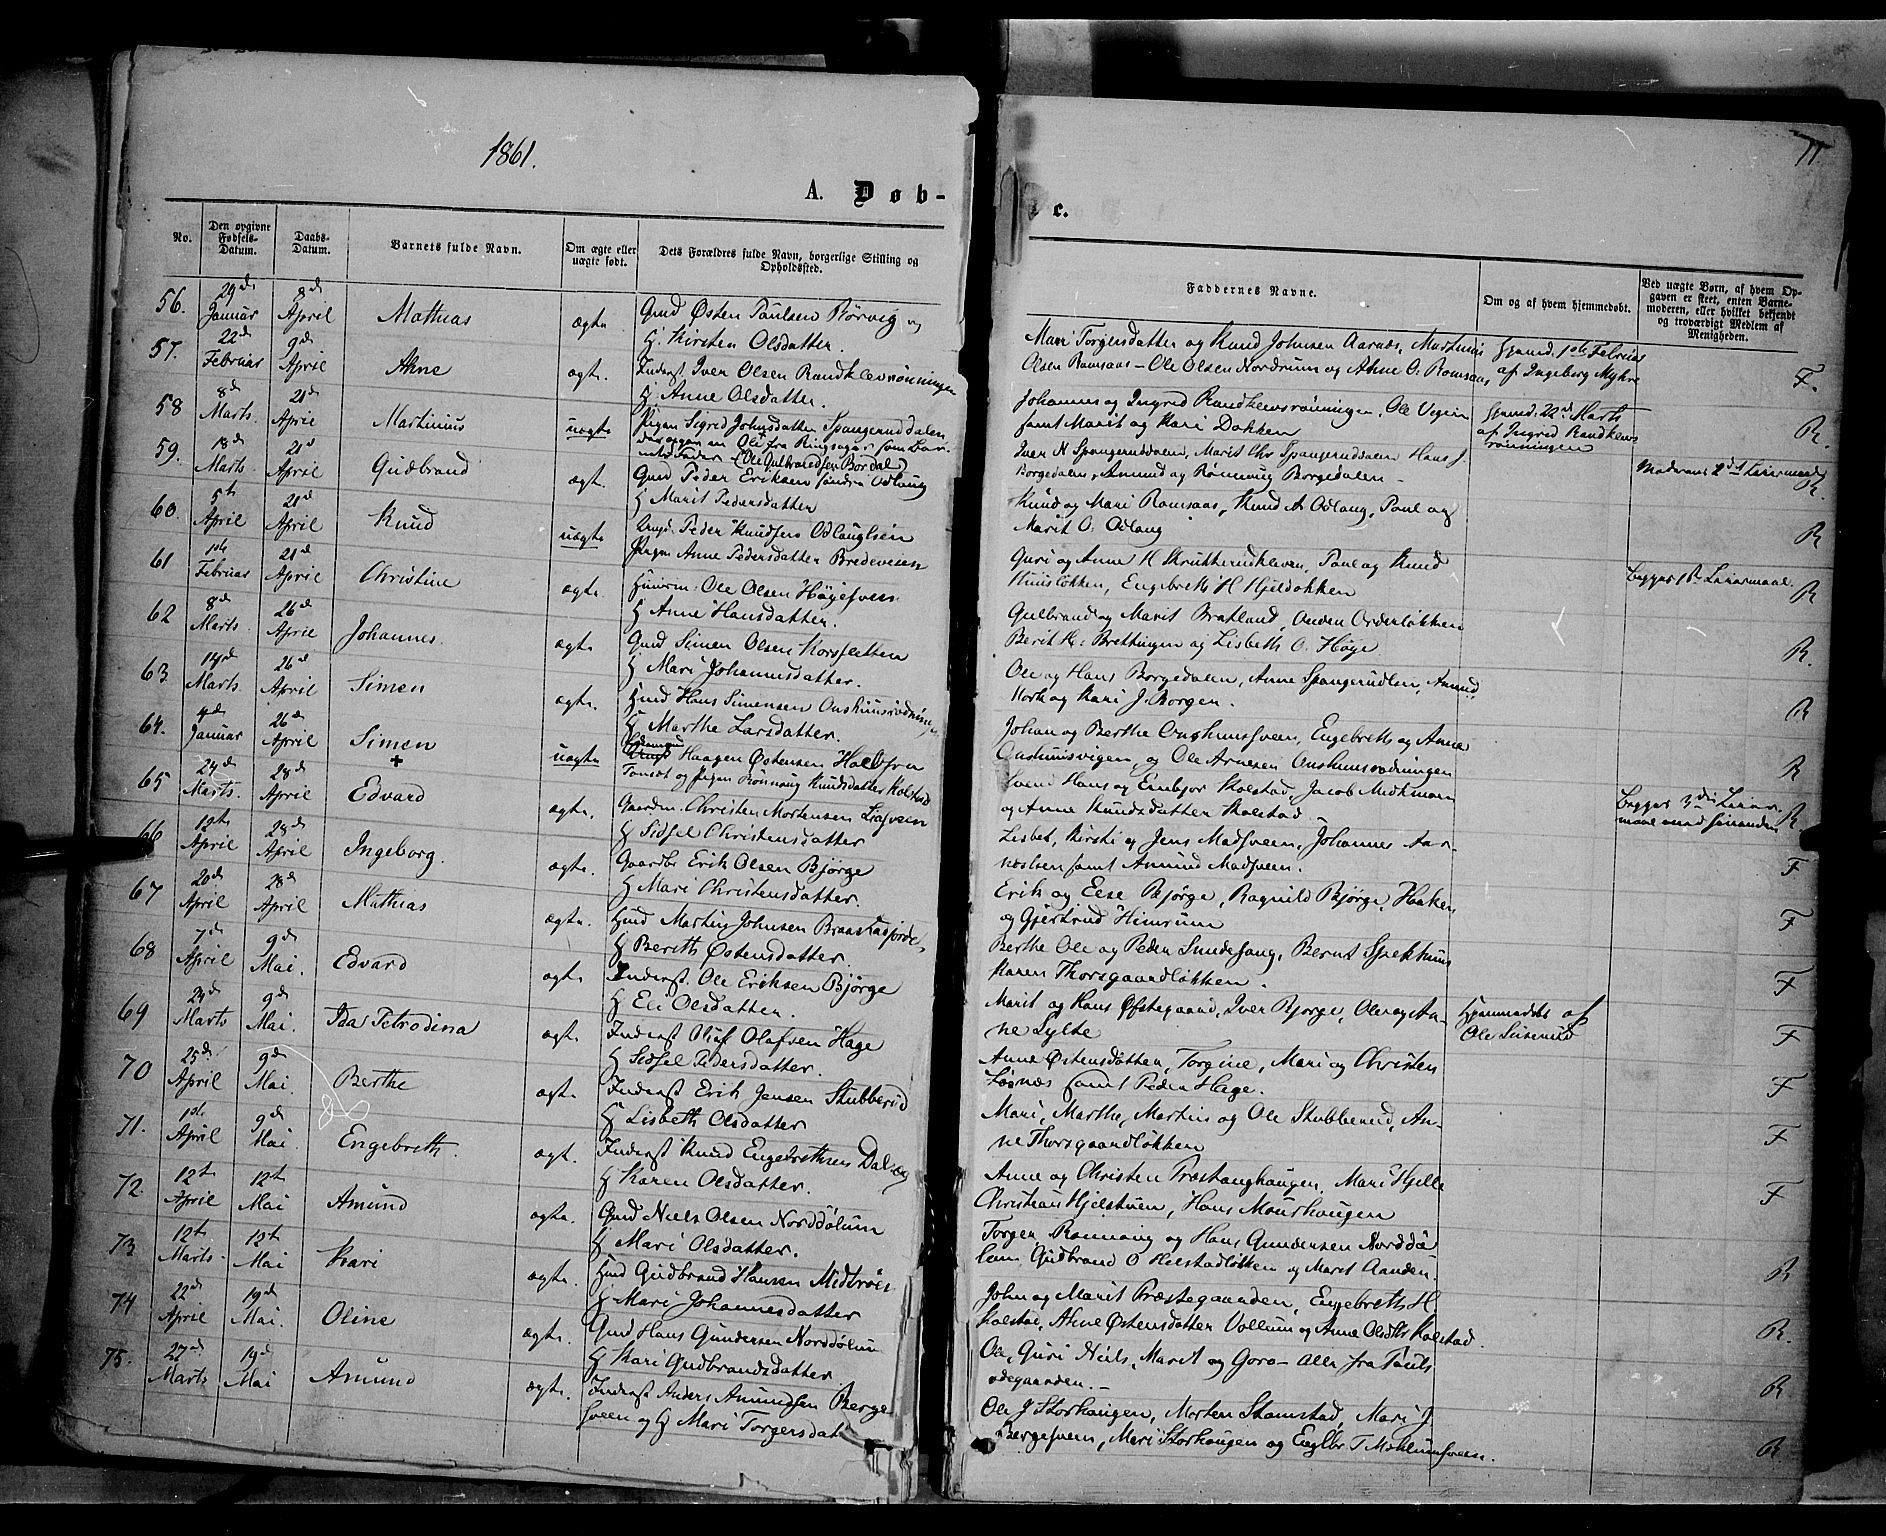 1861.
11
A. Døb-
c.
No.
Den opgivne Fødsels-Datum.
Daabs-Datum.
Barnets fulde Navn.
Om ægte eller uægte født.
Dets Forældres fulde Navn, borgerlige Stilling og Opholdssted.
Faddernes Navne.
Om og af hvem hjemmedøbt.
Ved uægte Børn, af hvem Opgaven er skeet, enten Barnemoderen, eller hvilket bekjendt og troværdigt Medlem af Menigheden.
56. 29de Januar 8de April Mathias ægte Gmd Østen Paulsen Rørvig og
H. Kirsten Olsdatter.
Mari Torgersdatter og Knud Johnsen Aarnæs, Martinus Hjemd. 1ste Februar
Olsen Romsaas - Ole Olsen Nordrum og Ahne O. Romsaas af Ingeborg Myhre F.
57. 22de Februar 9de April Ahne ægte. Inderst. Iver Olsen Randklevrønningen
H Anne Olsdatter.
Johannes og Ingrid Randklevsrønningen, Ole Vigen Hjemd. 22de Marts
samt Marit og Kari Dokken af Ingrid Randklevs rønningen R.
58 8de Marts. 21de April Martinius uægte Pigen Sigrid Johnsdatter Spangeruddalen
Ole fra Ringsager som Bar-
nefader (Ole Gulbrandsen Bordal)
Iver N Spangeruddalen, Marit Chr Spangeruddalen Hans J.
Borgedalen, Amund og Rønnaug Borgedalen - Moderens 2det Leiermaal R.
59. 18de Marts. 21de April Gudbrand ægt. Gmd Peder Eriksen søndre Odlaug
H Marit Pedersdatter
Knud og Mari Romsaas, Knud A. Odlaug, Paul og
Marit O. Odlaug R
60. 5te April 21de April Knud uægte Ungk. Peder Knudsen Odlaug
Pigen Anne Pedersdatter Bredeveien
Guri og Anne K Krukkerudkleven, Paul og Knud
Huusløkken, Engebreth H Hjeldokken Begges 1ste Leiermaal. R
61 1ste Februar 21de April Christine ægte. Huusm. Ole Olsen Høgesveen
H Anne Hansdatter.
Gulbrand og Marit Bratland,
Berit H. Brettingen og Lisbeth O. Høge R.
62 8de Marts. 26de April Johannes. ægte. Gmd Simen Olsen Korsletten
H Mari Johannesdatter.
Ole og Hans Borgedalen, Anne Spangerudlen, Amund
Hork og Kari J. Borgen. R
63. 14de Marts. 26de April Simen ægte. Hmd Hans Simensen
H Marthe Larsdatter.
Johan og Berthe Onshuussveen, Engebreth og Anne
Onshuusvigen, og Ole Arnesen Onshuusrødningen R
64. 4de Januar 26de April Simen + uægte Haagen Østensen
Tønset og Pigen Rønnaug Knudsdatter Kolstad
Hans og Embjør Kolstad, Jacob Midtmoen
og Anne Knudsdatter Kolstad - Begges 3die Leier-
maal med hinanden R.
65 24de Marts. 28de April Edvard ægte. Gaardm. Christen Mortensen Liosveen
H Sidsel Christensdatter
Lisbet, Kirsti og Jens Madsveen, Johannes Aar-
næslien samt Amund Madsveen. F
66 12te April 28de April Ingeborg. ægte. Gaardbr Erik Olsen Bjørge
H Mari Christensdatter.
Erik og Else Bjørge, Ragnild Bjørge, Haaken
og Gjertrud Heimrum F
67 20de April 28de April Mathias ægte. Hmd Martin Johnsen Braastadjorde
H Berith Østensdatter.
Berthe Ole og Peder Sundesang, Bernt Spækhuus
Karen Thorsgaardløkken. F
68 7de April 9de Mai. Edvard ægt. Inderst. Ole Eriksen Bjørge
H Eli Olsdatter.
Marit og Hans Øfstegaard, Iver Bjørge, Ole og An- Hjemmedøbt af
ne Lylte Ole Seiserud F
69 24de Marts 9de Mai. Ida Petrodina ægt. Inderst Oluf Olafsen Hage
H Sidsel Pedersdatter.
Anne Østensdatter, Torgine, Mari og Christen
Losnæs samt Peder Hage. F
70 25de April 9de Mai Berthe ægt. Inderst Erik Jensen Stubberud
H Lisbeth Olsdatter
Mari, Marthe, Martin og Ole Stubberud, An-
ne Thorsgaardløkken F
71. 1ste April 9de Mai. Engebreth. ægt. Inderst Knud Engebrethsen Dalseg
H Karen Olsdatter.
Anne og Christen Præstanghaugen, Mari Hjelle
Christian Hjelstuen, Hans Mourhaugen F
72. 12te April 12te Mai Amund ægte. Gmd Niels Olsen Norddølum
H Mari Olsdatter.
Torger Rønnaug og Hans Gundersen Norddø
lum Gudbrand O Kolstadløkken og Marit Aanden. R
73 12te Marts. 12te Mai Kari ægte. Hmd Gudbrand Hansen Midtrøes
H Mari Johannesdatter
John og Marit Præstegaarden, Engebreth H.
Kolstad, Ahne Østensdatter Vollum og Anne Olsdtr Kolstad. R.
74 22de April 19de Mai. Oline ægte. Gmd Hans Gundersen Norddølum
H Kari Gudbrandsdatter
Ole, Guri Niels, Marit og Goro - Alle fra Pauls
ødegaarden. - R
75. 27de Marts 19de Mai Amund ægte. Inderst Anders Amundsen Berge
sveen og H Mari Torgersdat
Ole J Storhaugen, Morten Stamstad, Mari J.
Bergesveen, Mari Storhaugen og Englbr T Mæhlumsveen. R